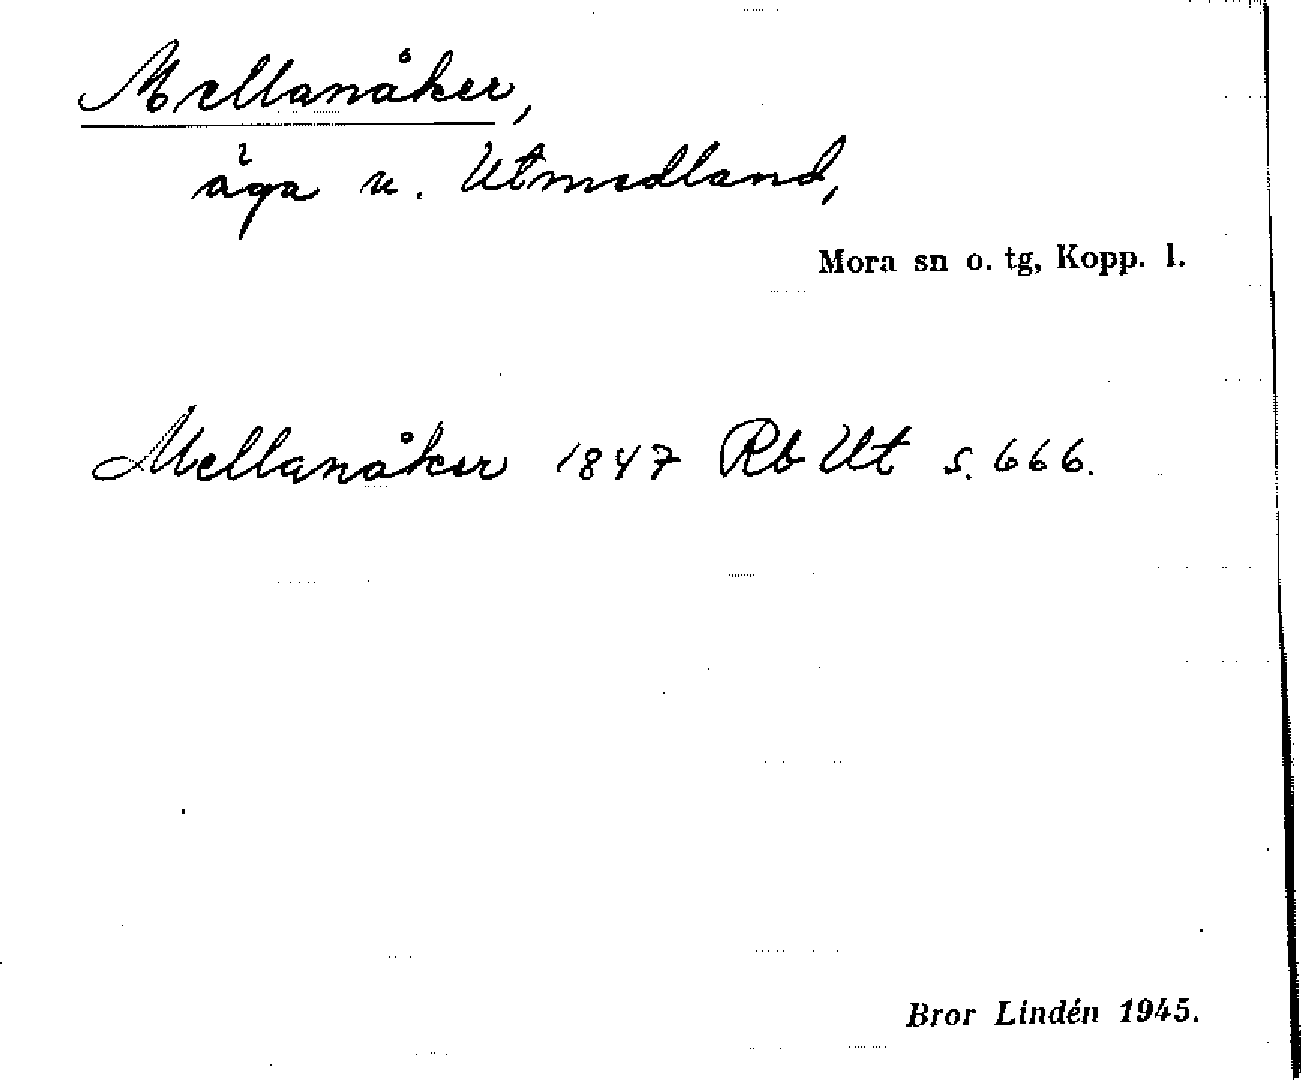 Mellanåker,
äga u. Utmedland,
Mora sn o. tg, Kopp. l.
Mellanåker 1847 Rb Ut s. 666.
Bror Lindén 1945.